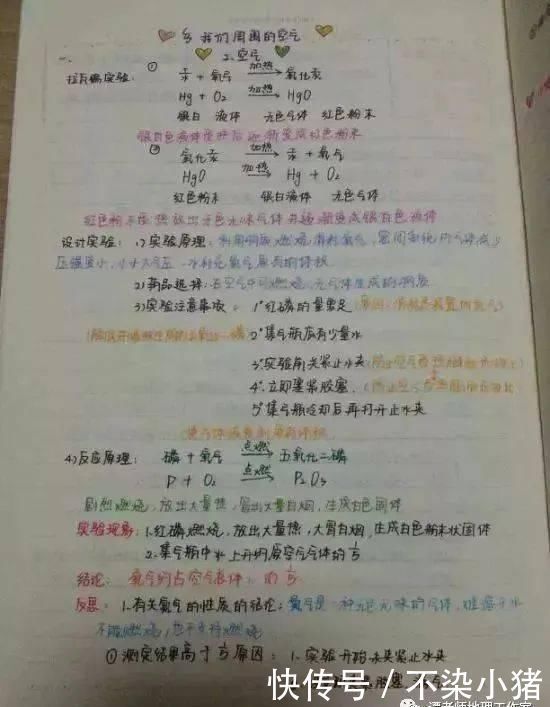 我们周围的空气
2.空气
一、
拉瓦锡实验: ① 汞 + 氧气 加热→ 氧化汞
Hg + O₂ 加热→ HgO
银白 液体 无色气体 红色粉末
银白色液体受热后逐渐变成红色粉末
② 氧化汞 加热→ 汞 + 氧气
HgO 加热→ Hg + O₂
红色粉末 银白液体 无色气体
红色粉末受热放出无色无味气体并逐渐变成银白色液体
设计实验: 1)实验原理: 利用物质燃烧消耗氧气,密闭系统内气体减少
压强变小,小于大气压
2)药品选择: 在空气中可燃烧,无气体生成的物质
3)实验注意事项: 1°红磷的量要足
2°集气瓶底有少量水
3°实验前关紧止水夹
4°立即塞紧胶塞
5°集气瓶冷却后再打开止水夹
4)反应原理: 磷 + 氧气 点燃→ 五氧化二磷
P + O₂ 点燃→ P₂O₅
剧烈燃烧,放出大量热,冒出大量白烟,生成白色固体
实验现象: 1.红磷燃烧,放出大量热,大冒白烟,生成白色粉末状固体
2.集气瓶中水上升约原空气气体的1/5
结论: 氧气约占空气总体积的1/5
反思: 1.有关氮气的性质的结论: 氮气是一种无色无味的气体,难溶于水
不能燃烧,也不支持燃烧
① 测定结果高于1/5原因: 1.实验开始未夹紧止水夹
快传号 / 不染小猪